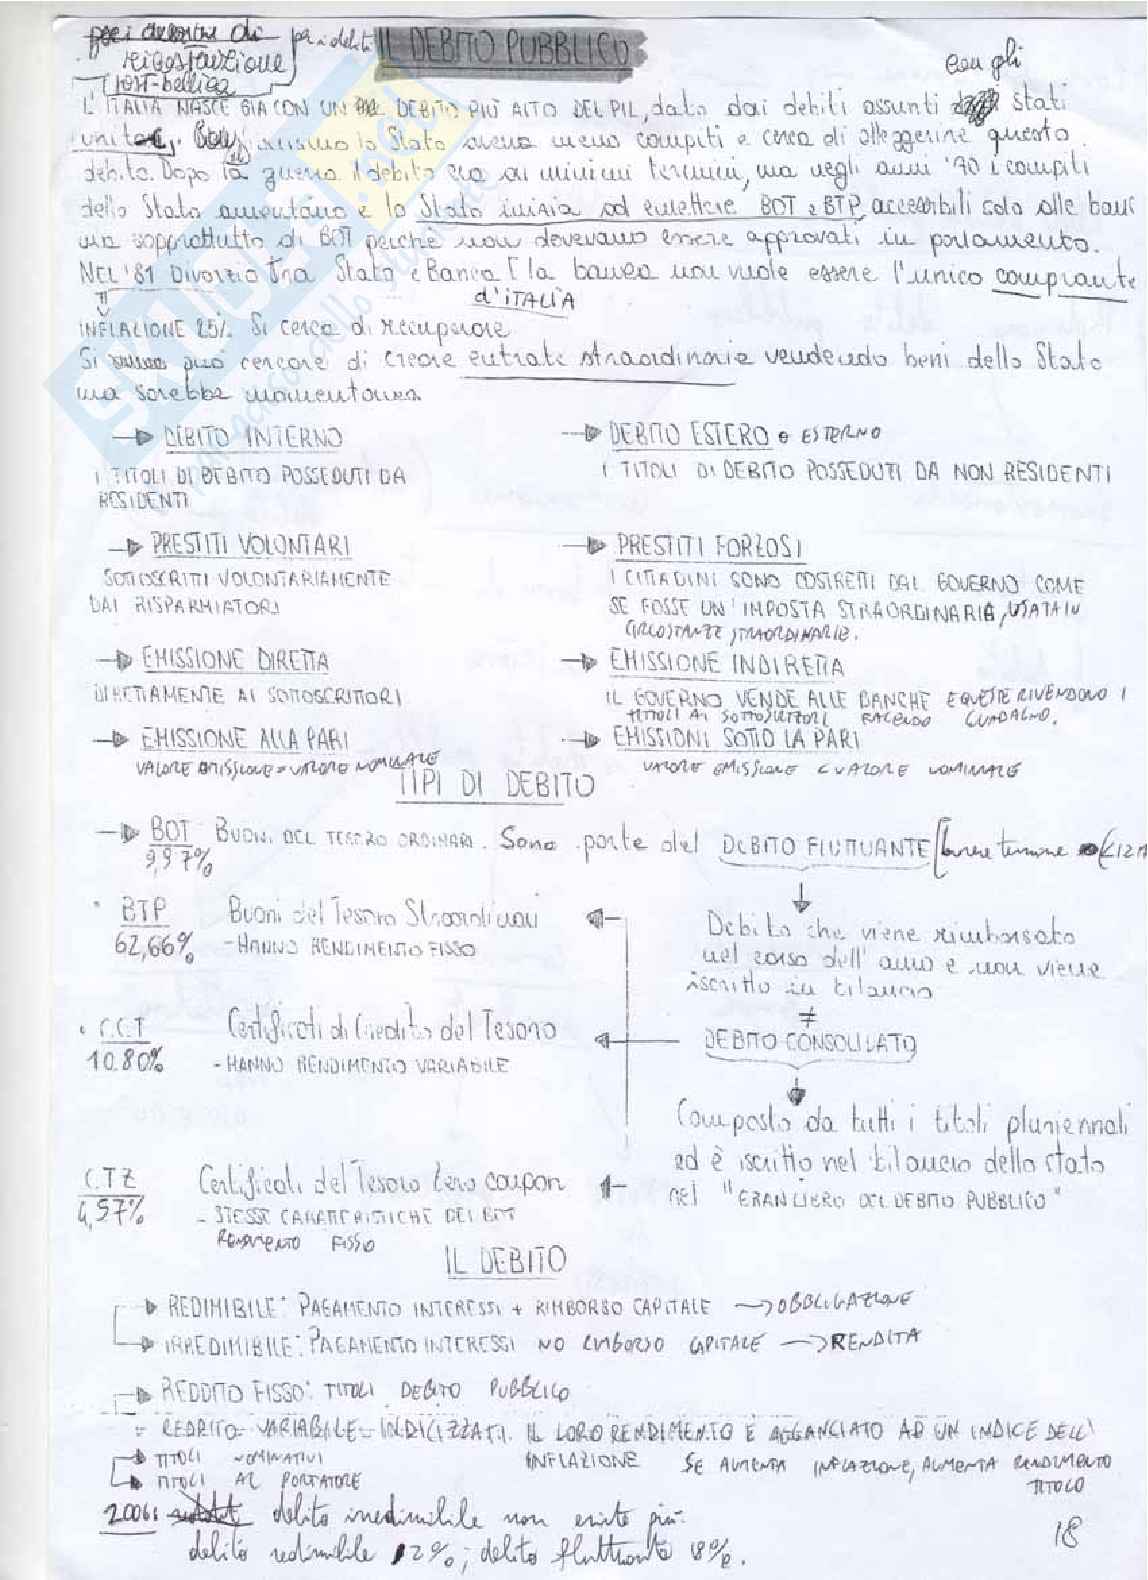 per i debiti di
ricostruzione
post-bellica
per i debiti IL DEBITO PUBBLICO
con gli
L'ITALIA NASCE GIA CON UN DEBITO PIÙ ALTO DEL PIL, dato dai debiti assunti stati
unitari. inizio lo Stato aveva meno compiti e cerca di alleggerire questo
debito. Dopo la guerra il debito era ai minimi termini, ma negli anni '70 i compiti
dello Stato aumentano e lo Stato inizia ad emettere BOT e BTP accessibili solo alle banc
ma soprattutto di BOT perchè non dovevano essere approvati in parlamento.
NEL '81 Divorzio tra Stato e Banca [la banca non vuole essere l'unico comprante
d'ITALIA
INFLAZIONE 25% Si cerca di recuperare
Si può cercare di creare entrate straordinarie vendendo beni dello Stato
ma sarebbe momentanea
DEBITO INTERNO
I TITOLI DI DEBITO POSSEDUTI DA
RESIDENTI
DEBITO ESTERO o ESTERNO
I TITOLI DI DEBITO POSSEDUTI DA NON RESIDENTI
PRESTITI VOLONTARI
SOTTOSCRITTI VOLONTARIAMENTE
DAI RISPARMIATORI
PRESTITI FORZOSI
I CITTADINI SONO COSTRETTI DAL GOVERNO COME
SE FOSSE UN'IMPOSTA STRAORDINARIA, USATA IN
CIRCOSTANZE STRAORDINARIE.
EMISSIONE DIRETTA
DIRETTAMENTE AI SOTTOSCRITTORI
EMISSIONE INDIRETTA
IL GOVERNO VENDE ALLE BANCHE E QUESTE RIVENDONO I
TITOLI AI SOTTOSCRITTORI FACENDO GUADAGNO.
EMISSIONE ALLA PARI
VALORE EMISSIONE = VALORE NOMINALE
EMISSIONI SOTTO LA PARI
VALORE EMISSIONE < VALORE NOMINALE
TIPI DI DEBITO
BOT BUONI DEL TESORO ORDINARI. Sono parte del DEBITO FLUTTUANTE [breve termine (<12M
9,97%
BTP Buoni del Tesoro Straordinari
62,66% - HANNO RENDIMENTO FISSO
Debito che viene rimborsato
nel corso dell'anno e non viene
iscritto in bilancio
≠
C.C.T Certificati di Credito del Tesoro
10.80% - HANNO RENDIMENTO VARIABILE
DEBITO CONSOLIDATO
Composto da tutti i titoli pluriennali
ed è iscritto nel bilancio dello stato
nel "GRAN LIBRO DEL DEBITO PUBBLICO"
C.T.Z Certificati del Tesoro Zero coupon
4,57% - STESSE CARATTERISTICHE DEI BOT
RENDIMENTO FISSO
IL DEBITO
REDIMIBILE: PAGAMENTO INTERESSI + RIMBORSO CAPITALE → OBBLIGAZIONE
IRREDIMIBILE: PAGAMENTO INTERESSI NO RIMBORSO CAPITALE → RENDITA
REDDITO FISSO: TITOLI DEBITO PUBBLICO
REDDITO VARIABILE = INDICIZZATI. IL LORO RENDIMENTO È AGGANCIATO AD UN INDICE DELL'
INFLAZIONE SE AUMENTA INFLAZIONE, AUMENTA RENDIMENTO
TITOLO
TITOLI NOMINATIVI
TITOLI AL PORTATORE
2006: debito irredimibile non esiste più.
debito redimibile 82%; debito fluttuante 18%.
18